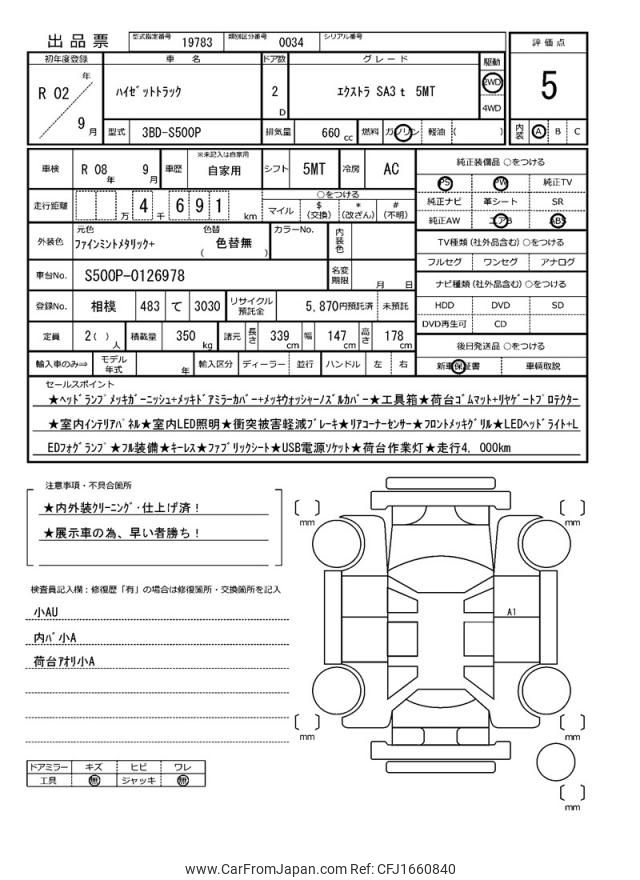 出品票 型式指定番号 19783 類別区分番号 0034 シリアル番号
評価点
5
内装 A B C
初年度登録 車名 ドア数 グレード 駆動
R 02 年 9 月
ﾊｲｾﾞｯﾄﾄﾗｯｸ
2 D
ｴｸｽﾄﾗ SA3 t 5MT
2WD
4WD
型式 3BD-S500P 排気量 660 cc 燃料 ガソリン 軽油 ( )
車検 R 08 年 9 月 車歴 ※未記入は自家用 自家用 シフト 5MT 冷房 AC
走行距離 万 4 千 6 9 1 km
○をつける
マイル $ (交換) * (改ざん) # (不明)
外装色 元色 ﾌｧｲﾝﾐﾝﾄﾒﾀﾘｯｸ+ 色替 ( 色替無 ) カラーNo. 内装色
車台No. S500P-0126978 名変期限 月 日
登録No. 相模 483 て 3030 リサイクル預託金 5,870円預託済 未預託
定員 2( ) 人 積載量 350 kg 諸元 長さ 339 cm 幅 147 cm 高さ 178 cm
輸入車のみ⇒ モデル年式 年 輸入区分 ディーラー 並行 ハンドル 左 右
純正装備品 ○をつける
PS PW 純正TV
純正ナビ 革シート SR
純正AW エアB ABS
TV種類(社外品含む) ○をつける
フルセグ ワンセグ アナログ
ナビ種類(社外品含む) ○をつける
HDD DVD SD
DVD再生可 CD
後日発送品 ○をつける
新車保証書 車輌取説
セールスポイント
★ﾍｯﾄﾞﾗﾝﾌﾟﾒｯｷｶﾞｰﾆｯｼｭ+ﾒｯｷﾄﾞｱﾐﾗｰｶﾊﾞｰ+ﾒｯｷｳｫｯｼｬｰﾉｽﾞﾙｶﾊﾞｰ★工具箱★荷台ｺﾞﾑﾏｯﾄ+ﾘﾔｹﾞｰﾄﾌﾟﾛﾃｸﾀｰ
★室内ｲﾝﾃﾘｱﾊﾟﾈﾙ★室内LED照明★衝突被害軽減ﾌﾞﾚｰｷ★ﾘｱｺｰﾅｰｾﾝｻｰ★ﾌﾛﾝﾄﾒｯｷｸﾞﾘﾙ★LEDﾍｯﾄﾞﾗｲﾄ+L
EDﾌｫｸﾞﾗﾝﾌﾟ★ﾌﾙ装備★ｷｰﾚｽ★ﾌｧﾌﾞﾘｯｸｼｰﾄ★USB電源ｿｹｯﾄ★荷台作業灯★走行4，000km
注意事項・不具合箇所
★内外装ｸﾘｰﾆﾝｸﾞ･仕上げ済！
★展示車の為、早い者勝ち！
検査員記入欄：修復歴「有」の場合は修復箇所・交換箇所を記入
小AU
内ﾊﾞ小A
荷台ｱｵﾘ小A
ドアミラー キズ ヒビ ワレ
工具 無 ジャッキ 無
[ ] mm
[ ] mm
A1
[ ] mm
[ ] mm
[ ] mm
www.CarFromJapan.com Ref: CFJ1660840